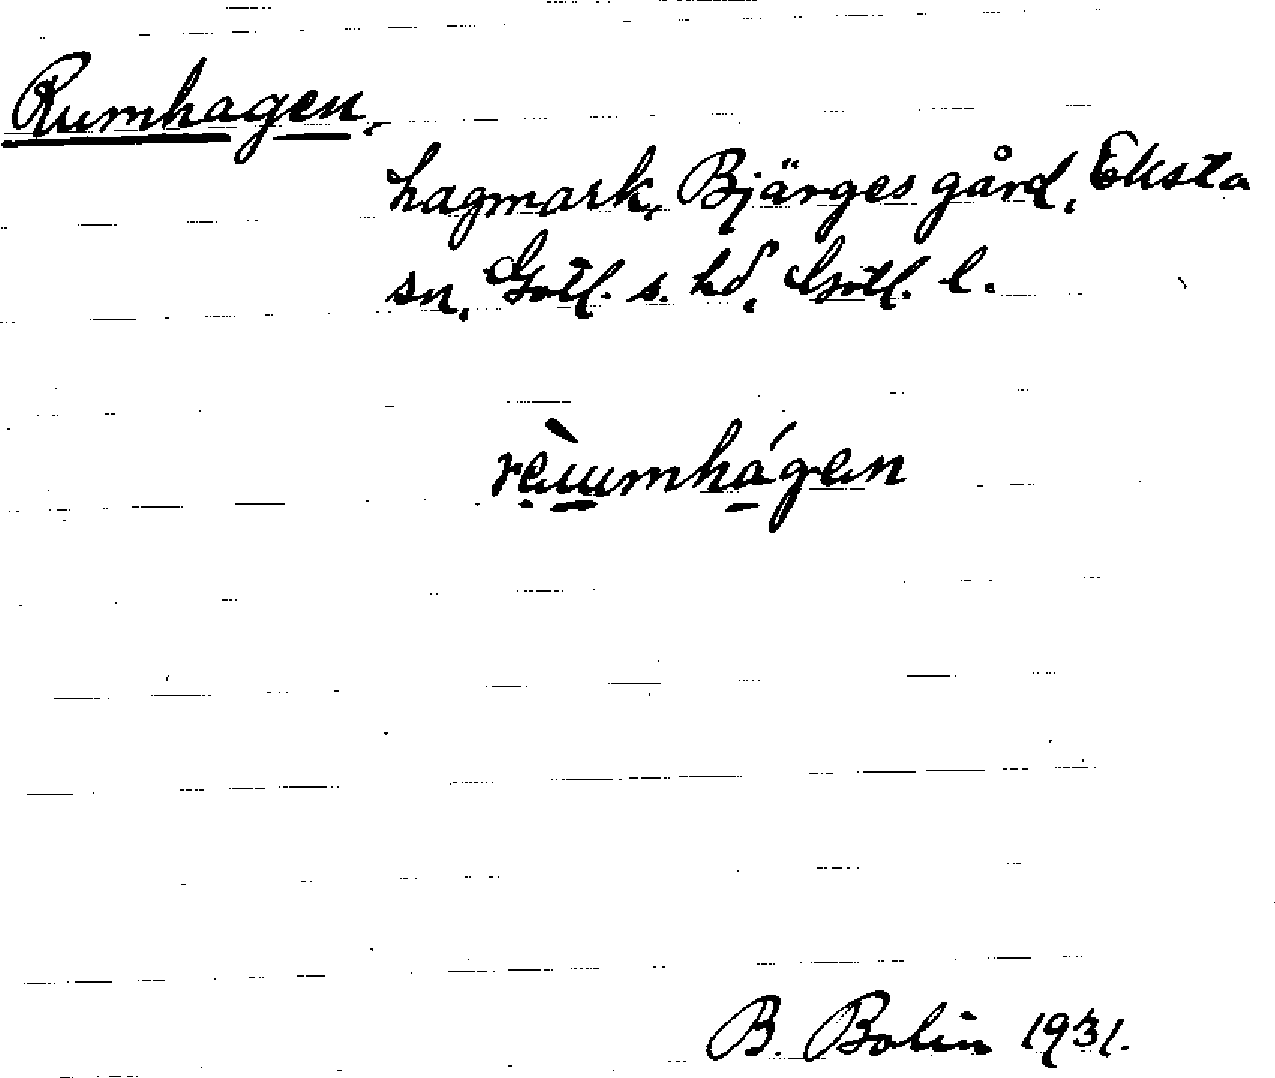 Rumhagen,
hagmark, Bjärges gård, Eksta
sn, Gotl. s. hd, Gotl. l.
re̖ùumhágen
B. Bolin 1931.